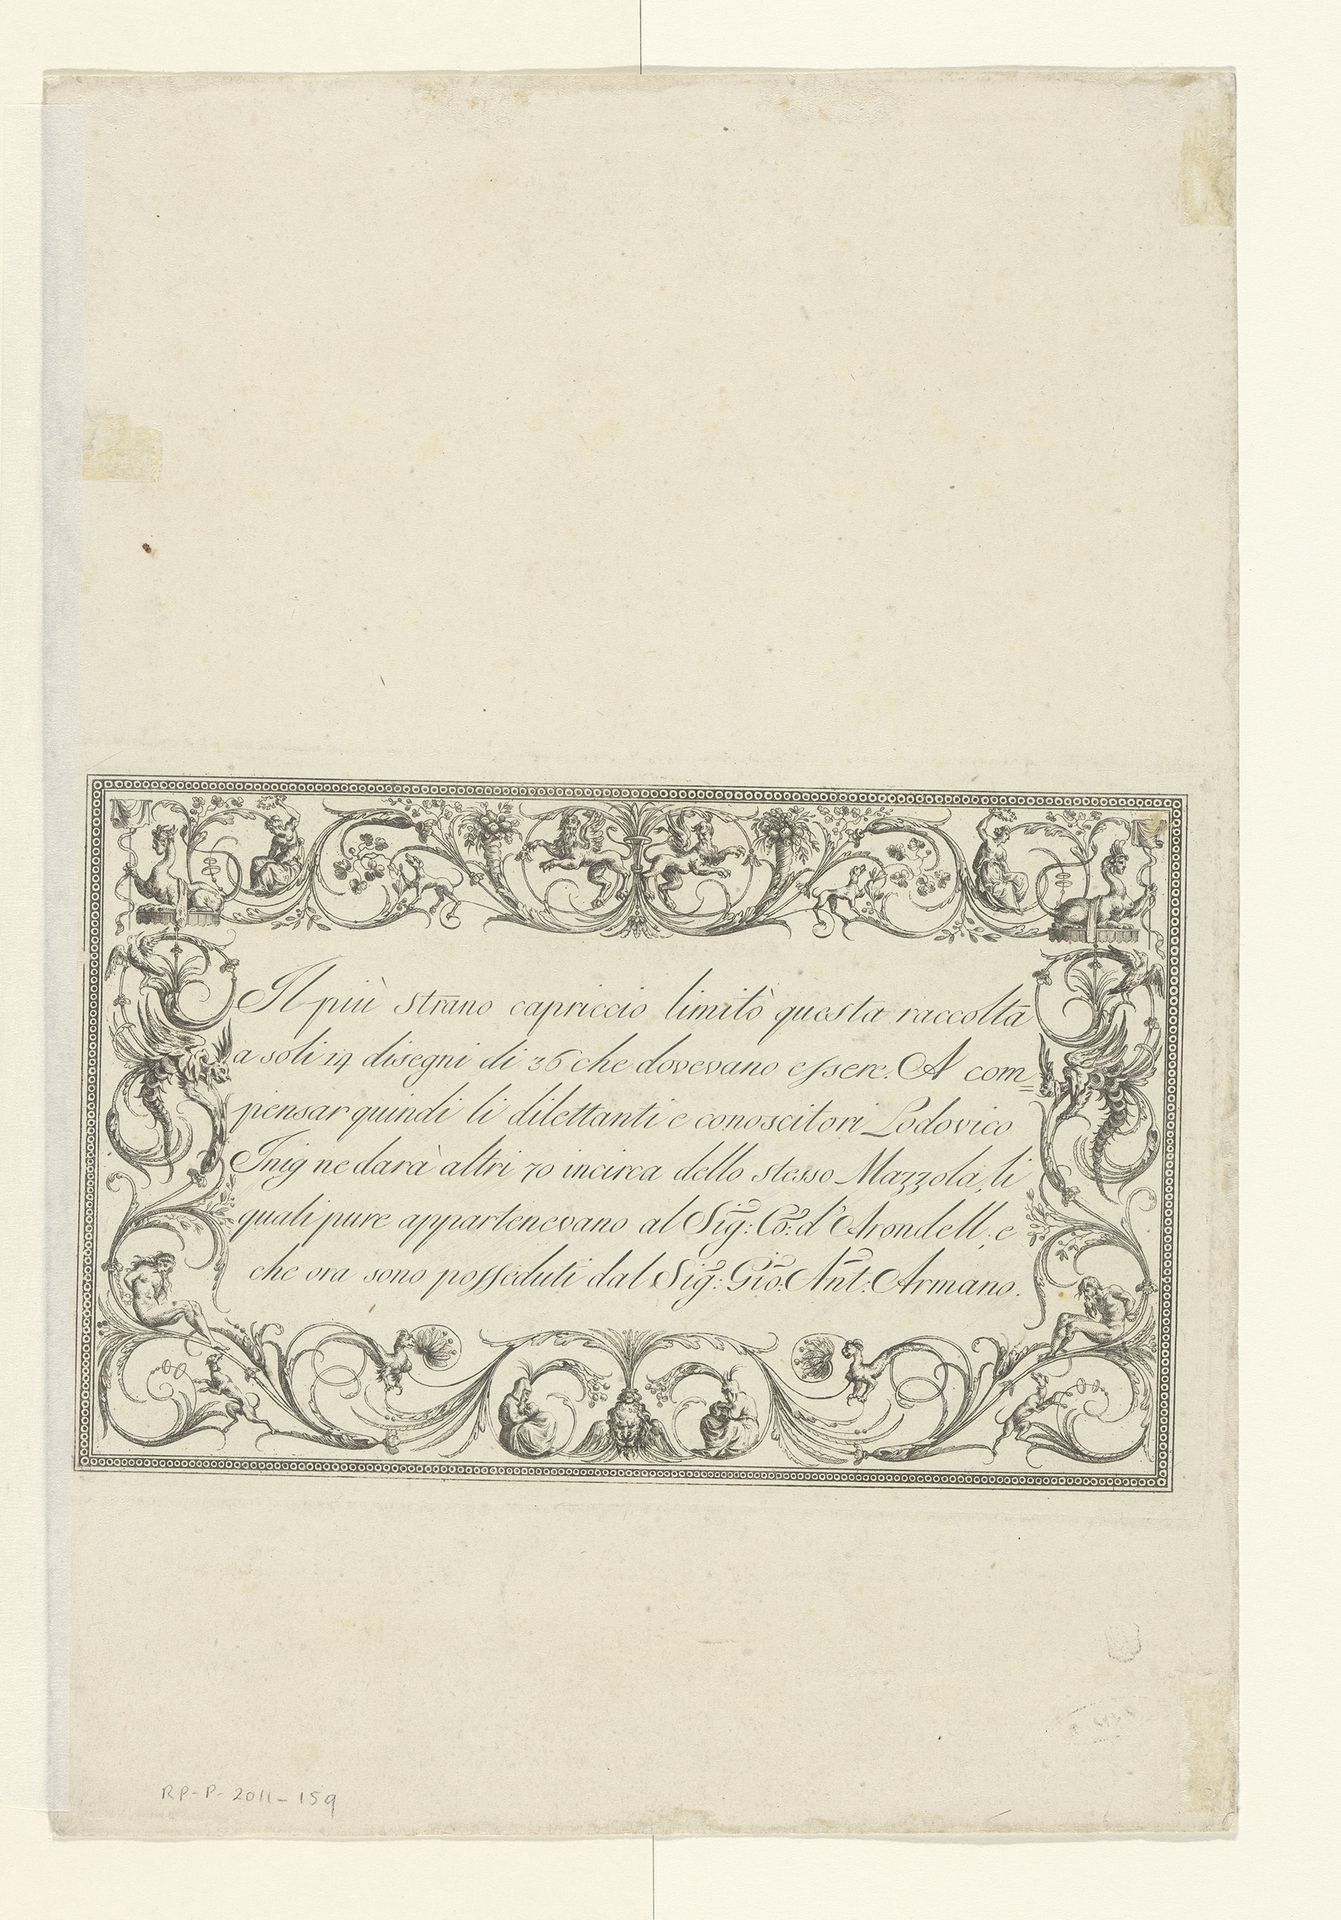 Il più strano capriccio limitò questa raccolta
a soli 14 disegni di 36 che dovevano essere. A com=
pensar quindi li dilettanti e conoscitori Lodovico
Inig ne darà altri 70 incirca dello stesso Mazzola, li
quali pure appartenevano al Sig.: Co: d'Arondell, e
che ora sono posseduti dal Sig.: Gio: Ant: Armano.
RP-P-2011-159